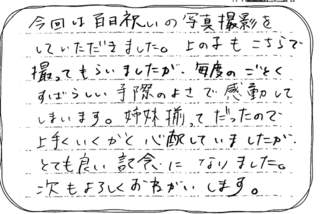 今回は百日祝いの写真撮影を
していただきました。上の子もこちらで
撮ってもらいましたが、毎度のごとく
すばらしい手際のよさで感動して
しまいます。姉妹揃ってだったので
上手くいくかと心配していましたが、
とても良い記念になりました。
次もよろしくおねがいします。